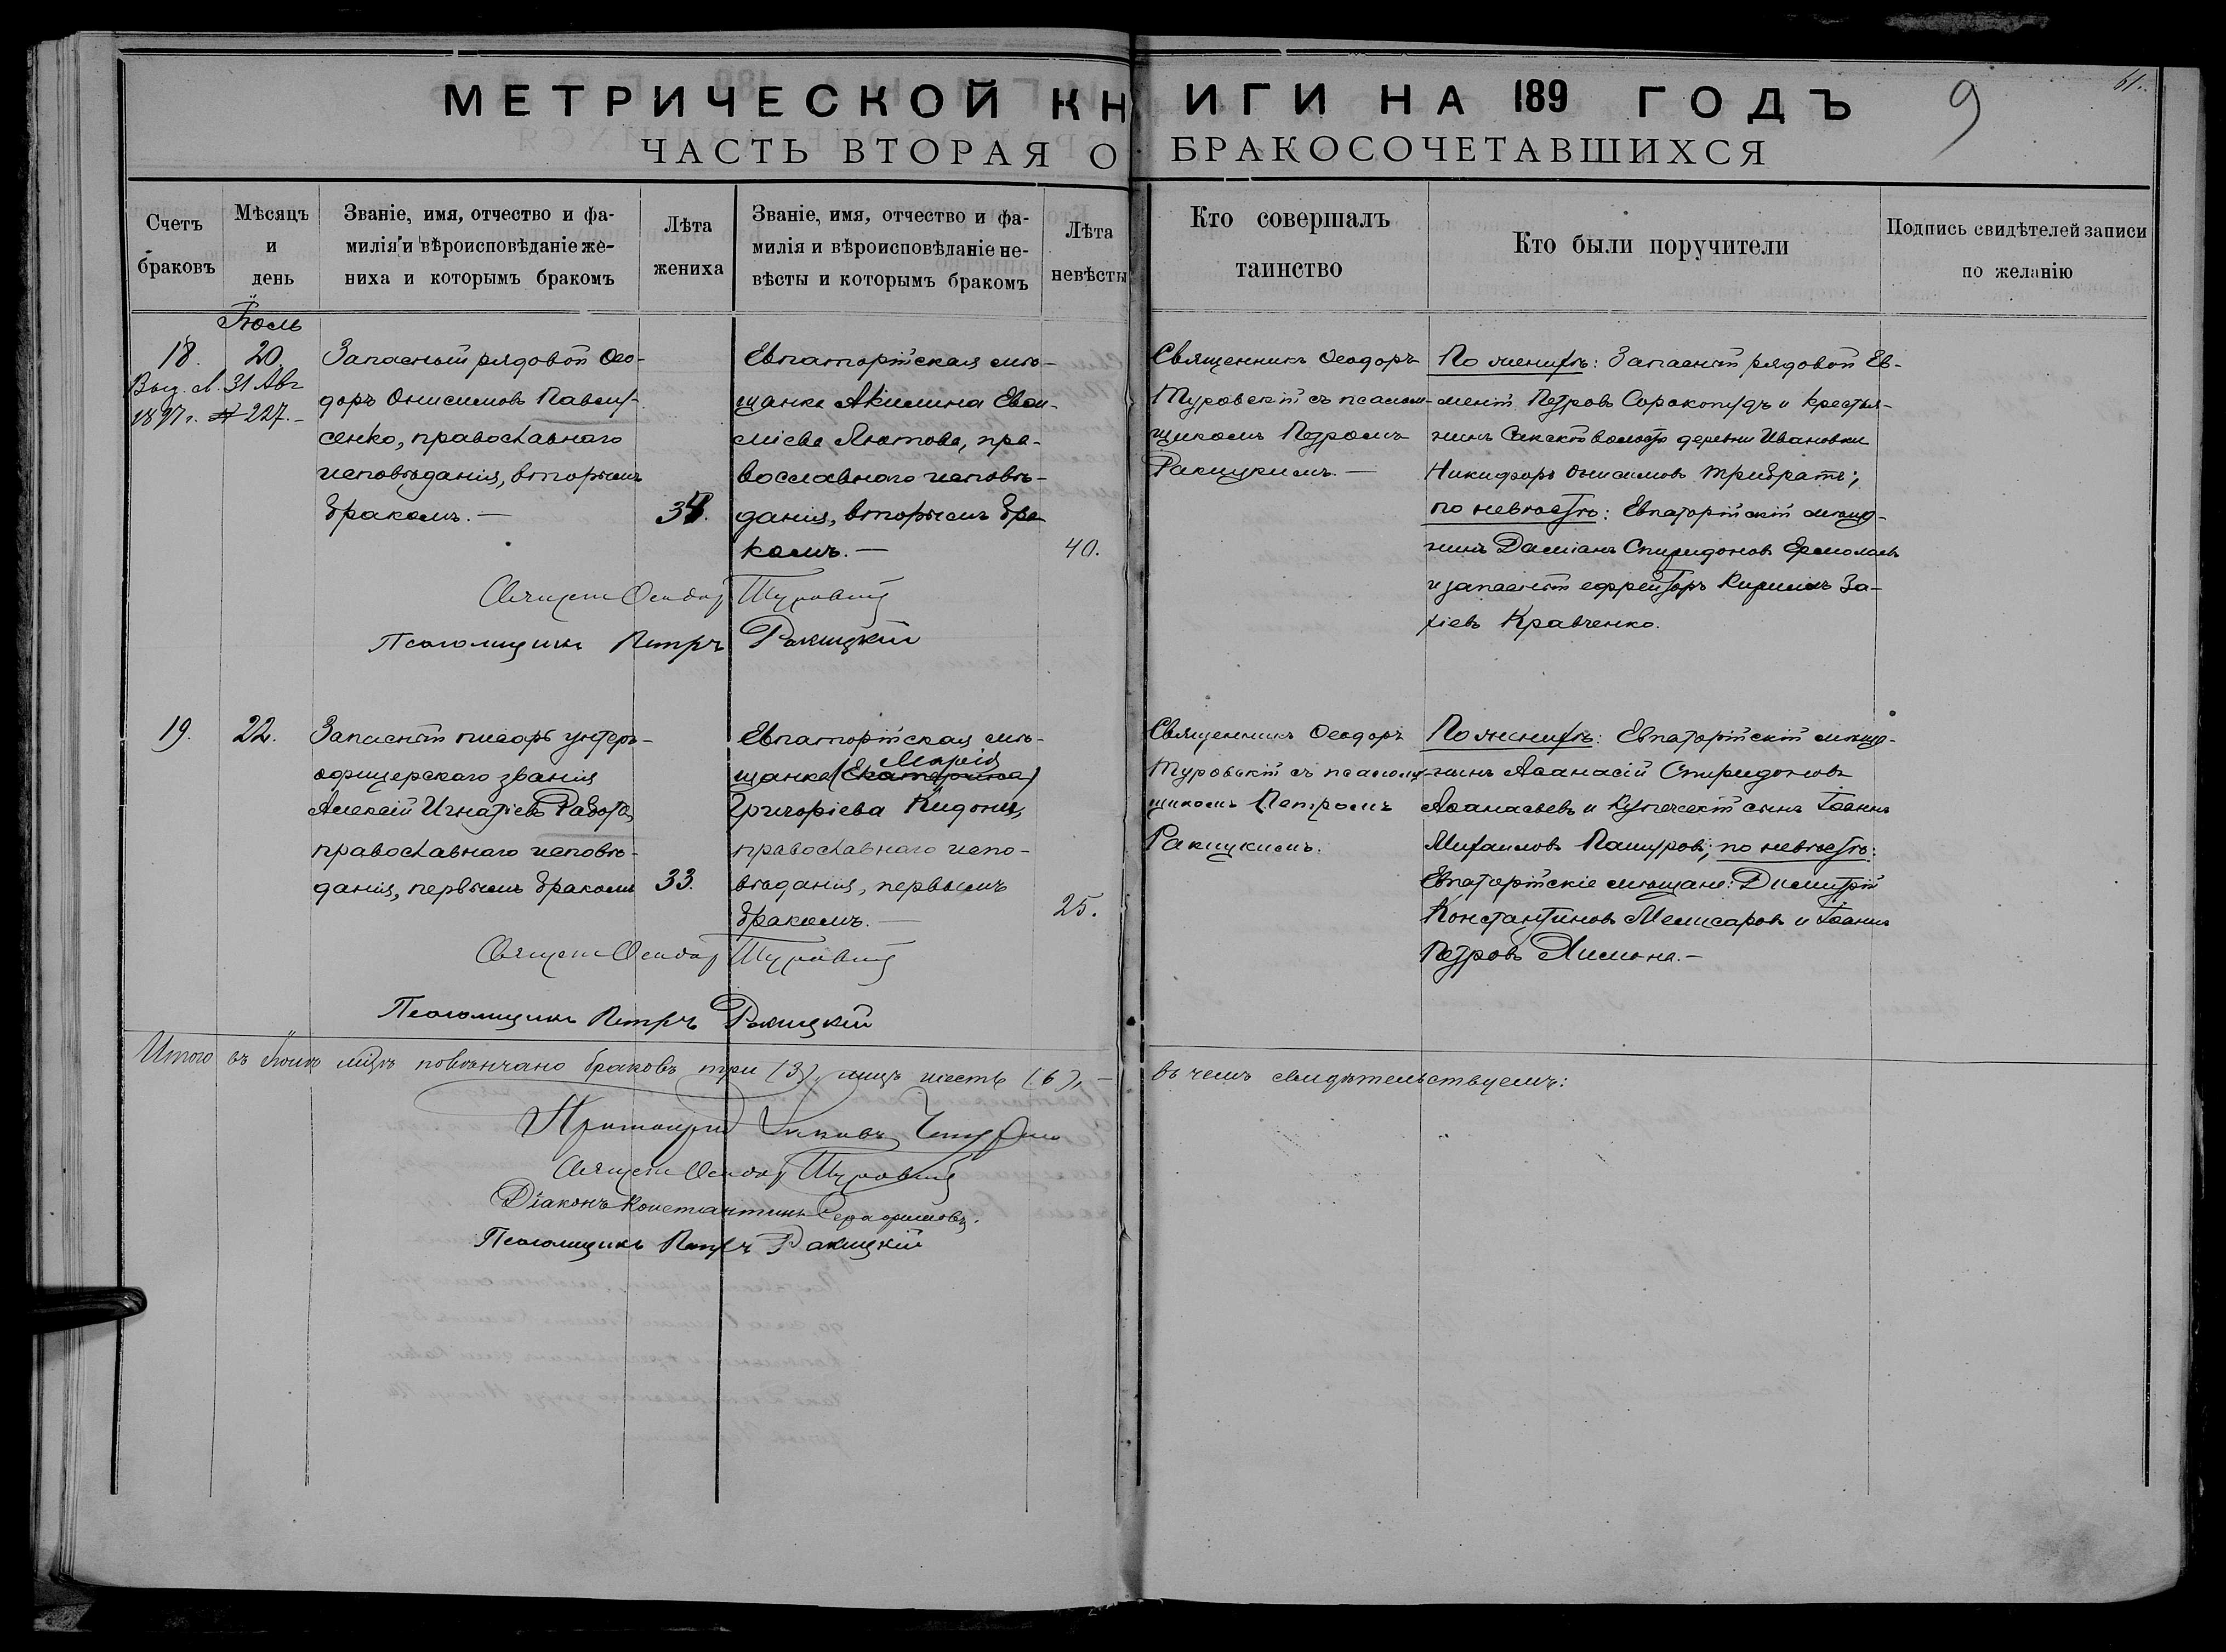 МЕТРИЧЕСКОЙ КНИГИ НА 189 ГОДЪ
9
61.
ЧАСТЬ ВТОРАЯ О БРАКОСОЧЕТАВШИХСЯ
Счетъ браковъ
Мѣсяцъ и день
Званіе, имя, отчество и фа-
милія и вѣроисповѣданіе же-
ниха и которымъ бракомъ
Лѣта жениха
Званіе, имя, отчество и фа-
милія и вѣроисповѣданіе не-
вѣсты и которымъ бракомъ
Лѣта невѣсты
Кто совершалъ
таинство
Кто были поручители
Подпись свидѣтелей записи
по желанію
Іюль
18.
20.
Выд. 31 Авг
1897 г. № 227.-
Запасный рядовой Ѳео-
доръ Онисимовъ Павлу-
сенко, православнаго
исповѣданія, вторымъ
бракомъ.-
34.
Евпаторійская мѣ-
щанка Акилина Евѳи-
міева Лютова, пра-
вославнаго исповѣ-
данія, вторымъ бра-
комъ.-
40.
Священникъ Ѳеодоръ
Туровскій съ псалом-
щикомъ Петромъ
Ракицкимъ.-
По женихѣ: Запасный рядовой Ев-
меній Петровъ Сорокопудъ и крестья-
нинъ Сакской волости деревни Ивановки
Никифоръ Онисимовъ Трибратъ;
по невѣстѣ: Евпаторійскій мѣща-
нинъ Даміанъ Спиридоновъ Ермолаевъ
и запасный ефрейторъ Кириллъ За-
хіевъ Кравченко.
Священ Ѳеодор Туровскій
Псаломщикъ Петръ Ракицкій
19.
22.
Запасный писарь унтеръ-
офицерскаго званія
Алексій Игнатіевъ Работа,
православнаго исповѣ-
данія, первымъ бракомъ
33.
Евпаторійская мѣ-
Марія
щанка (Екатерина)
Григоріева Кидонц,
православнаго испо-
вѣданія, первымъ
бракомъ.-
25.
Священникъ Ѳеодоръ
Туровскій съ псаломщи-
щикомъ Петромъ
Ракицкимъ.
По женихѣ: Евпаторійскій мѣща-
нинъ Аѳанасій Спиридоновъ
Аѳанасьевъ и купеческій сынъ Іоаннъ
Михаиловъ Пашуровъ; по невѣстѣ:
Евпаторійскіе мѣщане: Димитрій
Константиновъ Мелисаровъ и Іоаннъ
Петровъ Химона.-
Священ Ѳеодор Туровскій
Псаломщикъ Петръ Ракицкій
Итого въ Іюлѣ мцѣ повѣнчано браковъ три (3), лицъ шесть (6),- въ чемъ свидѣтельствуемъ:
Протоіерей Іаковъ
Священ Ѳеодор Туровскій
Діаконъ Константинъ Серафимовъ.
Псаломщикъ Петръ Ракицкій